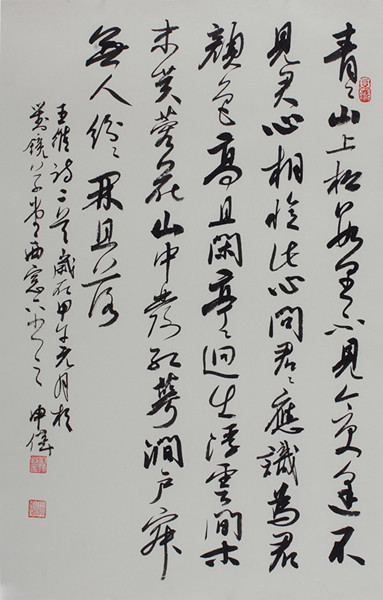 青〻山上松數里不見今更逢不
見君心相憶此心問君〻應識為君
顏色高且閑亭〻迥生浮雲間木
末芙蓉花山中發紅萼澗戶寂
無人紛〻開且落
王維詩二首歲在甲午元月於
西窗下 申偉